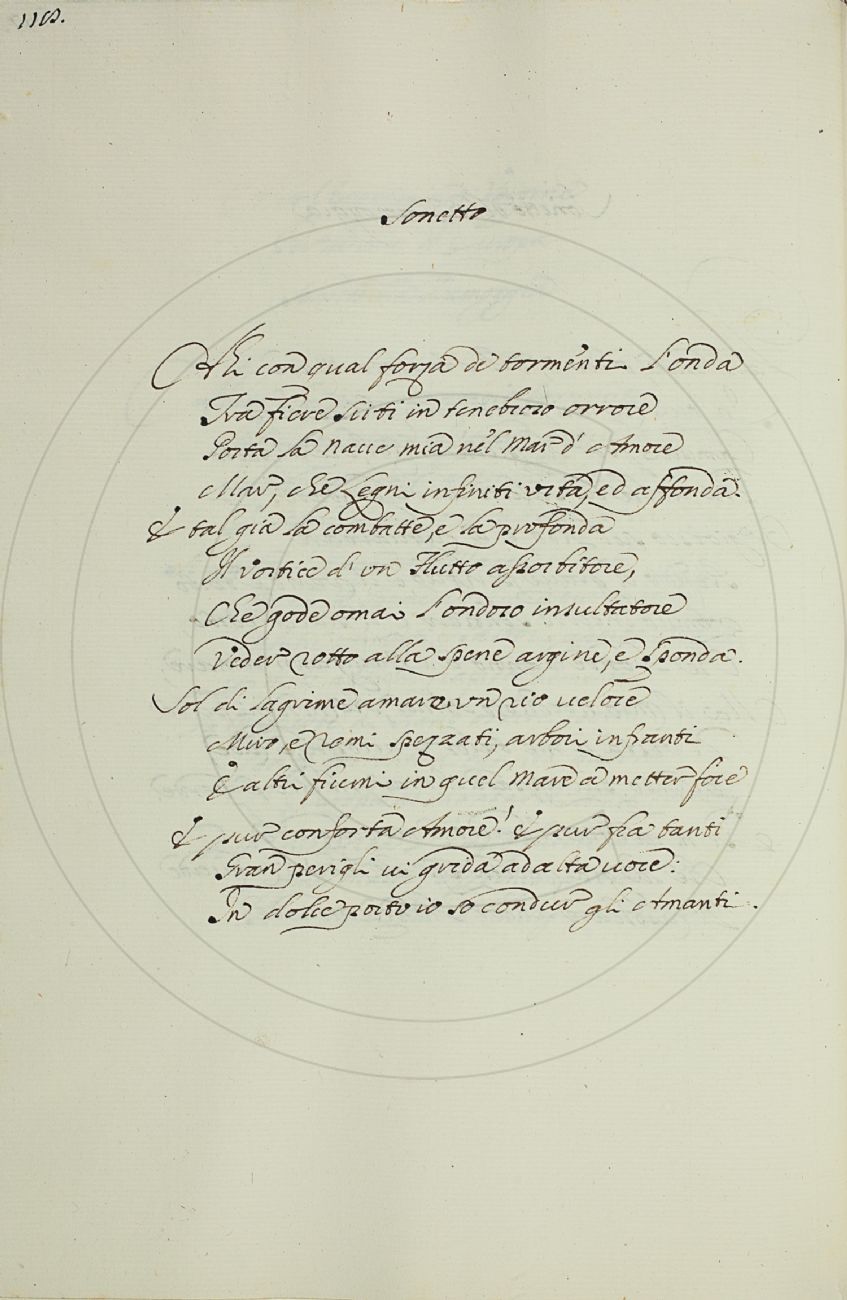 118.
Sonetto
Ahi con qual forza di tormenti l'onda
Fra fiere Sirti in tenebroso orrore
Porta la Nave mia nel Mar d'Amore
Mar, che Legni infiniti urta, ed affonda.
E tal già la combatte, e la profonda
Il vortice d'un Flutto assorbitore,
Che gode omai l'ondoso insultatore
Veder rotto alla spene argine, e sponda.
Sol di lagrime amare un rio veloce
Miro, e remi spezzati, arbori infranti
E altri fiumi in quel Mare a metter foce
E pur conforta Amore! E pur fra tanti
Gran perigli vi grida ad alta voce:
In dolce porto io so condur gli Amanti.